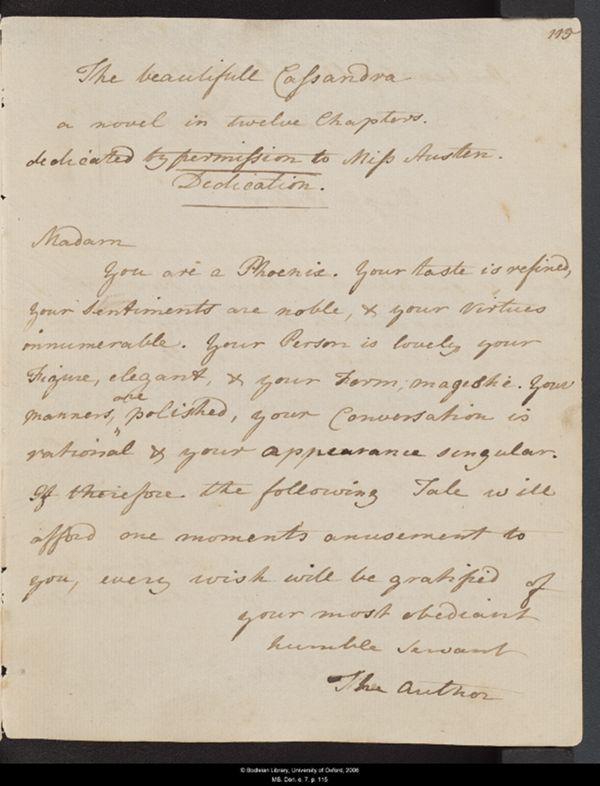 115
The beautifull Cassandra
a novel in twelve Chapters.
dedicated by permission to Miss Austen.
Dedication.
Madam
You are a Phoenix. Your taste is refined,
your Sentiments are noble, & your Virtues
innumerable. Your Person is lovely, your
Figure, elegant, & your Form, magestic. Your
are
manners, polished, your Conversation is
rational & your appearance singular.
If therefore the following Tale will
afford one moment's amusement to
you, every wish will be gratified of
your most obediant
humble servant
The Author
© Bodleian Library, University of Oxford, 2006
MS. Don. e. 7, p. 115